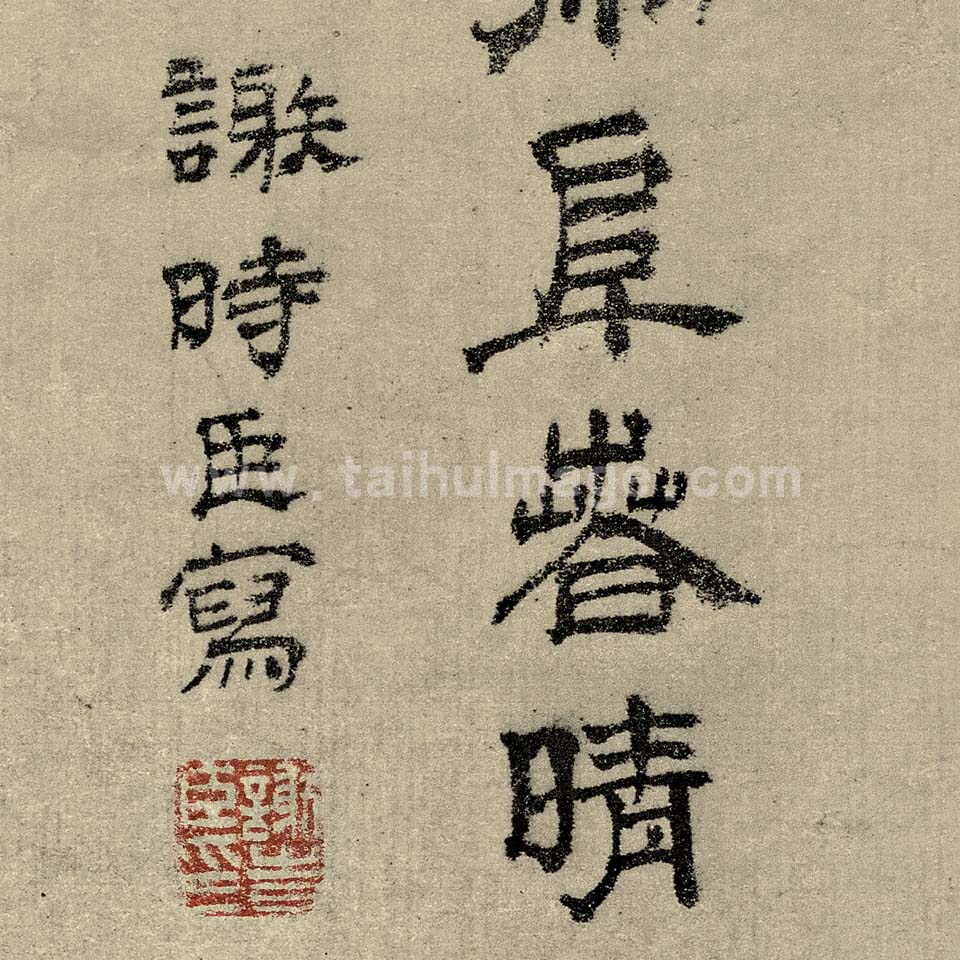 阜春晴
謝時臣寫
www.taihuImage.com